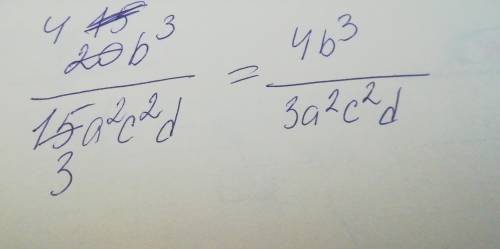 4 15
20b³ / 15a²c²d = 4b³ / 3a²c²d
3